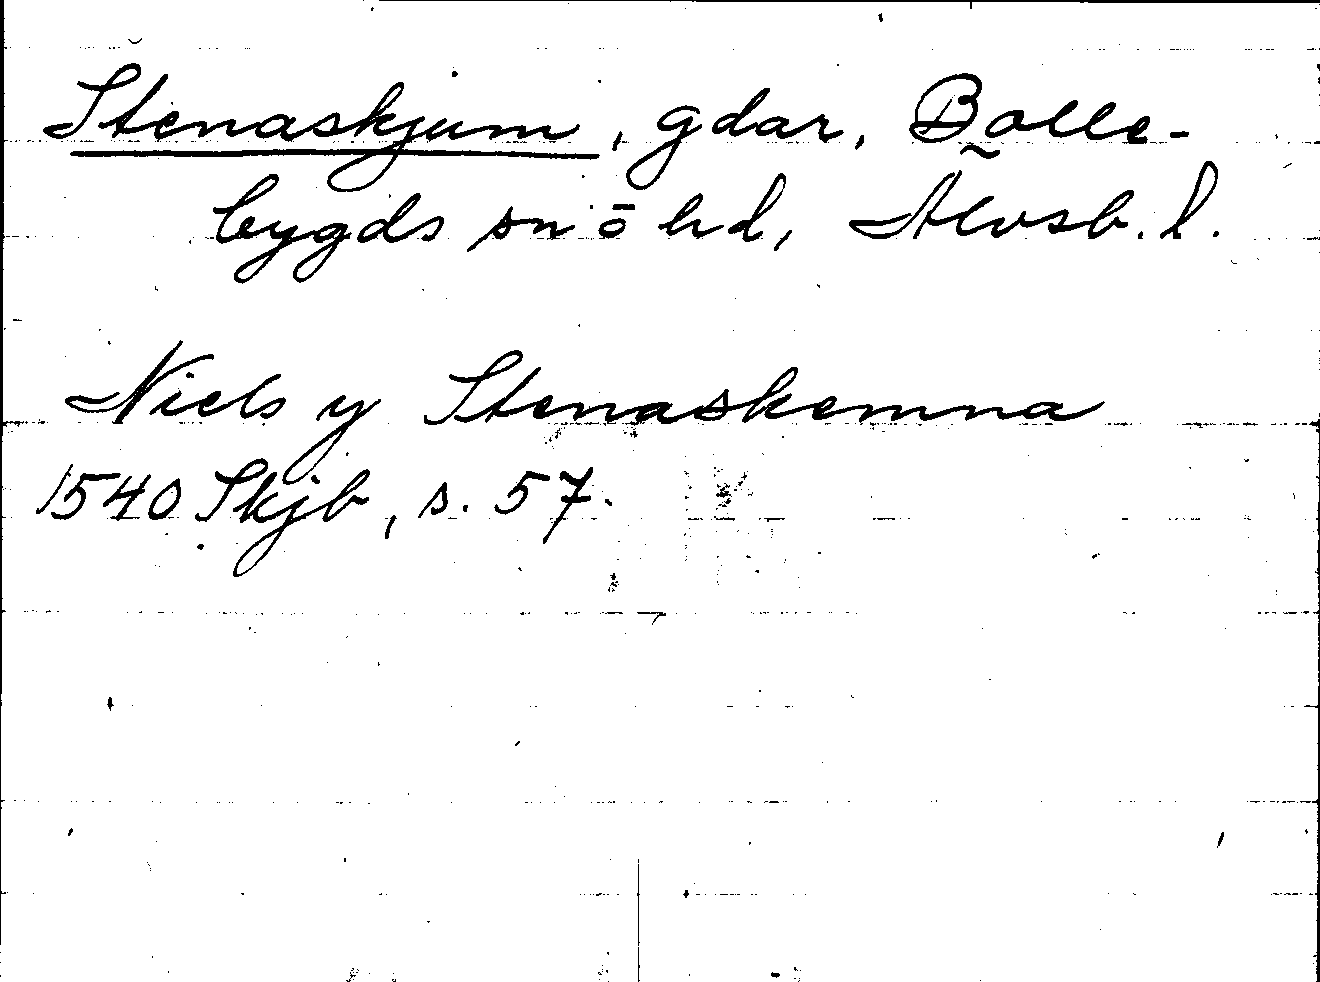 Stenaskjum, gdar, Bolle-
bygds sn ō hd, Älvsb. l.
Niels y Stenaskemna
1540 Skjb, s. 57.